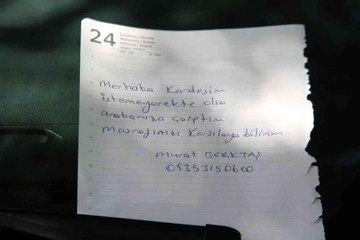 24
Merhaba Kardeşim
istemeyerekte olsa
arabanıza çarptım
Masrafınızı Karşılaya bilirim
Murat BERKTAŞ
05353150600